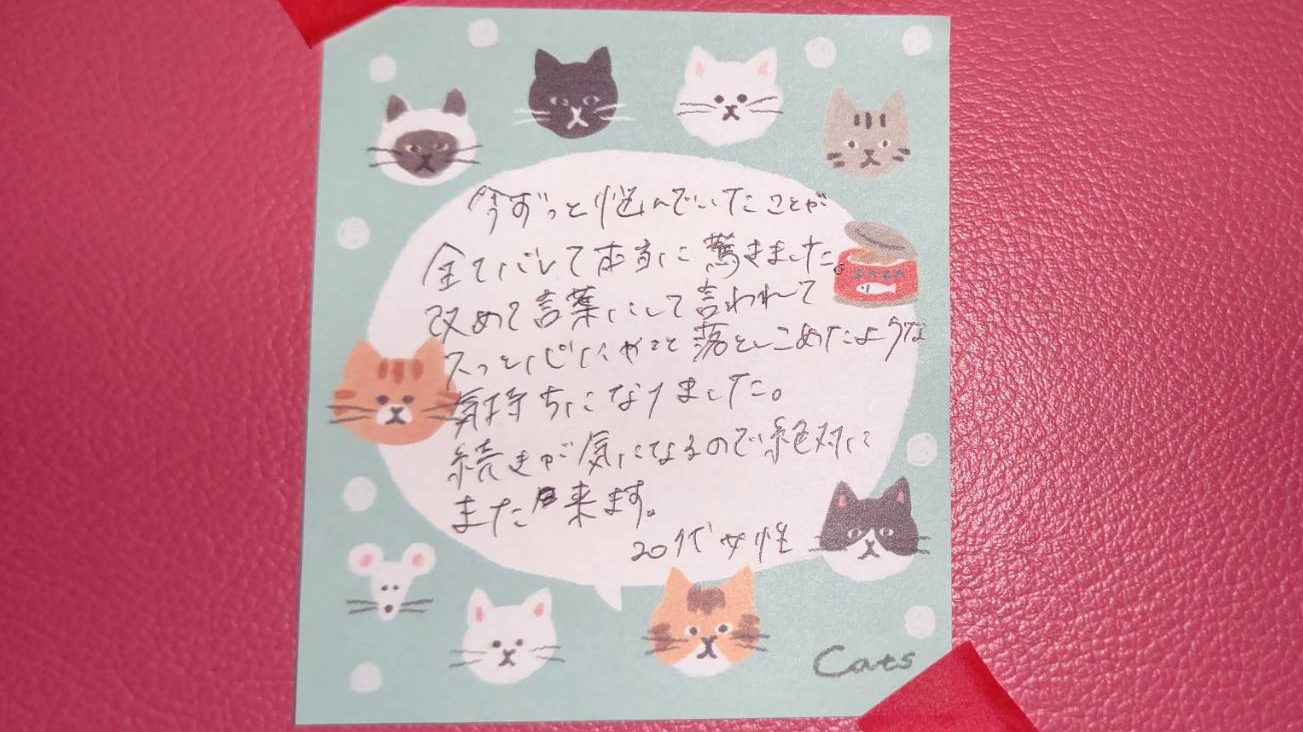 今ずっと悩んでいたことが
全てバレて本当に驚きました。
改めて言葉にして言われて
スっと心にやっと落としこめたような
気持ちになりました。
続きが気になるので絶対に
また来ます。
20代女性
Cats